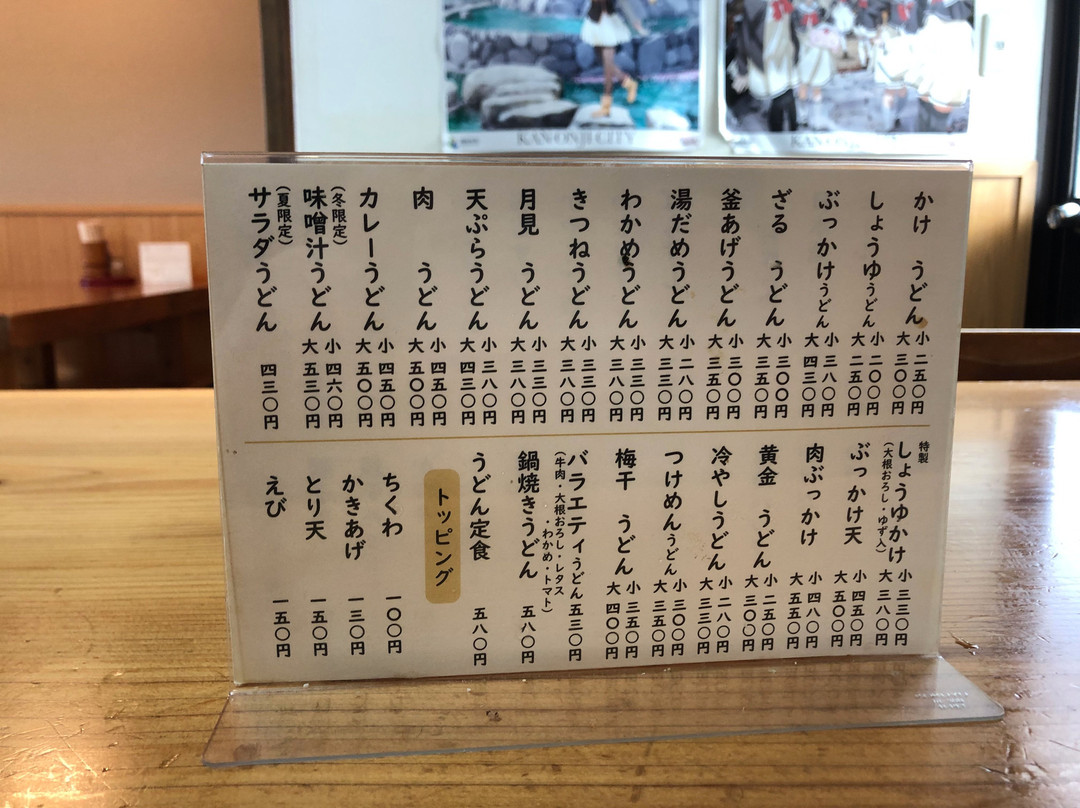 KAN-ONJI CITY
かけ うどん 小 二五〇円
大 三〇〇円
しょうゆうどん 小 二〇〇円
大 二五〇円
ぶっかけうどん 小 三八〇円
大 四三〇円
ざる うどん 小 三〇〇円
大 三五〇円
釜あげうどん 小 三〇〇円
大 三五〇円
湯だめうどん 小 二八〇円
大 三三〇円
わかめうどん 小 三三〇円
大 三八〇円
きつねうどん 小 三三〇円
大 三八〇円
月見 うどん 小 三三〇円
大 三八〇円
天ぷらうどん 小 三八〇円
大 四三〇円
肉 うどん 小 四五〇円
大 五〇〇円
カレーうどん 小 四五〇円
大 五〇〇円
(冬限定)
味噌汁うどん 小 四六〇円
大 五三〇円
(夏限定)
サラダうどん 四三〇円
特製
しょうゆかけ 小 三三〇円
(大根おろし・ゆず入) 大 三八〇円
ぶっかけ天 小 四五〇円
大 五〇〇円
肉ぶっかけ 小 四八〇円
大 五五〇円
黄金 うどん 小 二五〇円
大 三〇〇円
冷やしうどん 小 二八〇円
大 三三〇円
つけめんうどん 小 三〇〇円
大 三五〇円
梅干 うどん 小 三五〇円
大 四〇〇円
バラエティうどん 五三〇円
(牛肉・大根おろし・レタス
・わかめ・トマト)
鍋焼きうどん 五八〇円
うどん定食 五八〇円
トッピング
ちくわ 一〇〇円
かきあげ 一三〇円
とり天 一五〇円
えび 一五〇円